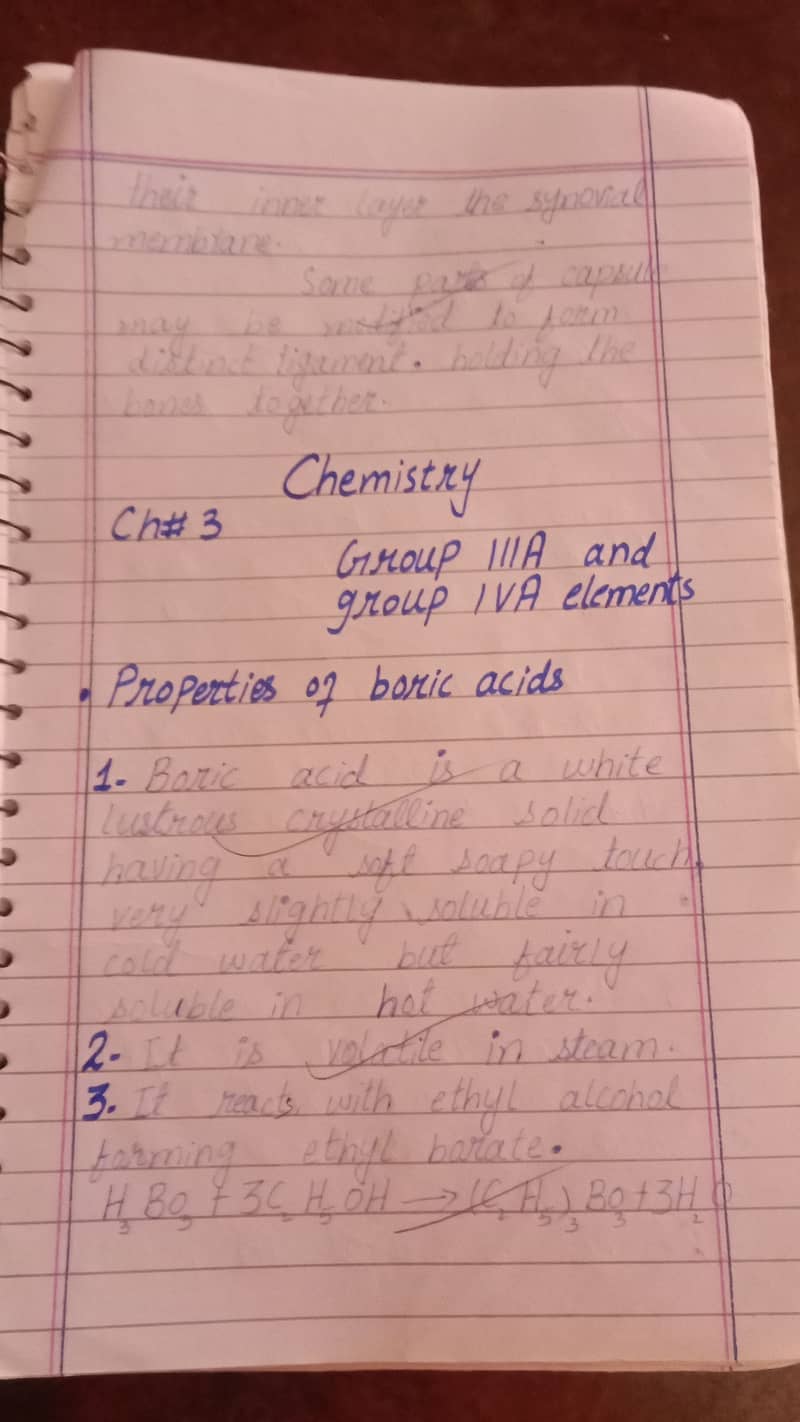 their inner layer the synovial
membrane.
Some parts of capsule
may be modified to form
distinct ligament. holding the
bones together.
Chemistry
Ch# 3
Group IIIA and
group IVA elements
• Properties of boric acids
1- Boric acid is a white
lustrous crystalline solid
having a soft soapy touch,
very slightly soluble in
cold water but fairly
soluble in hot water.
2- It is volatile in steam.
3. It reacts with ethyl alcohol
forming ethyl borate.
H₃Bo₃ + 3C₂H₅OH → (C₂H₅)₃Bo₃ + 3H₂O